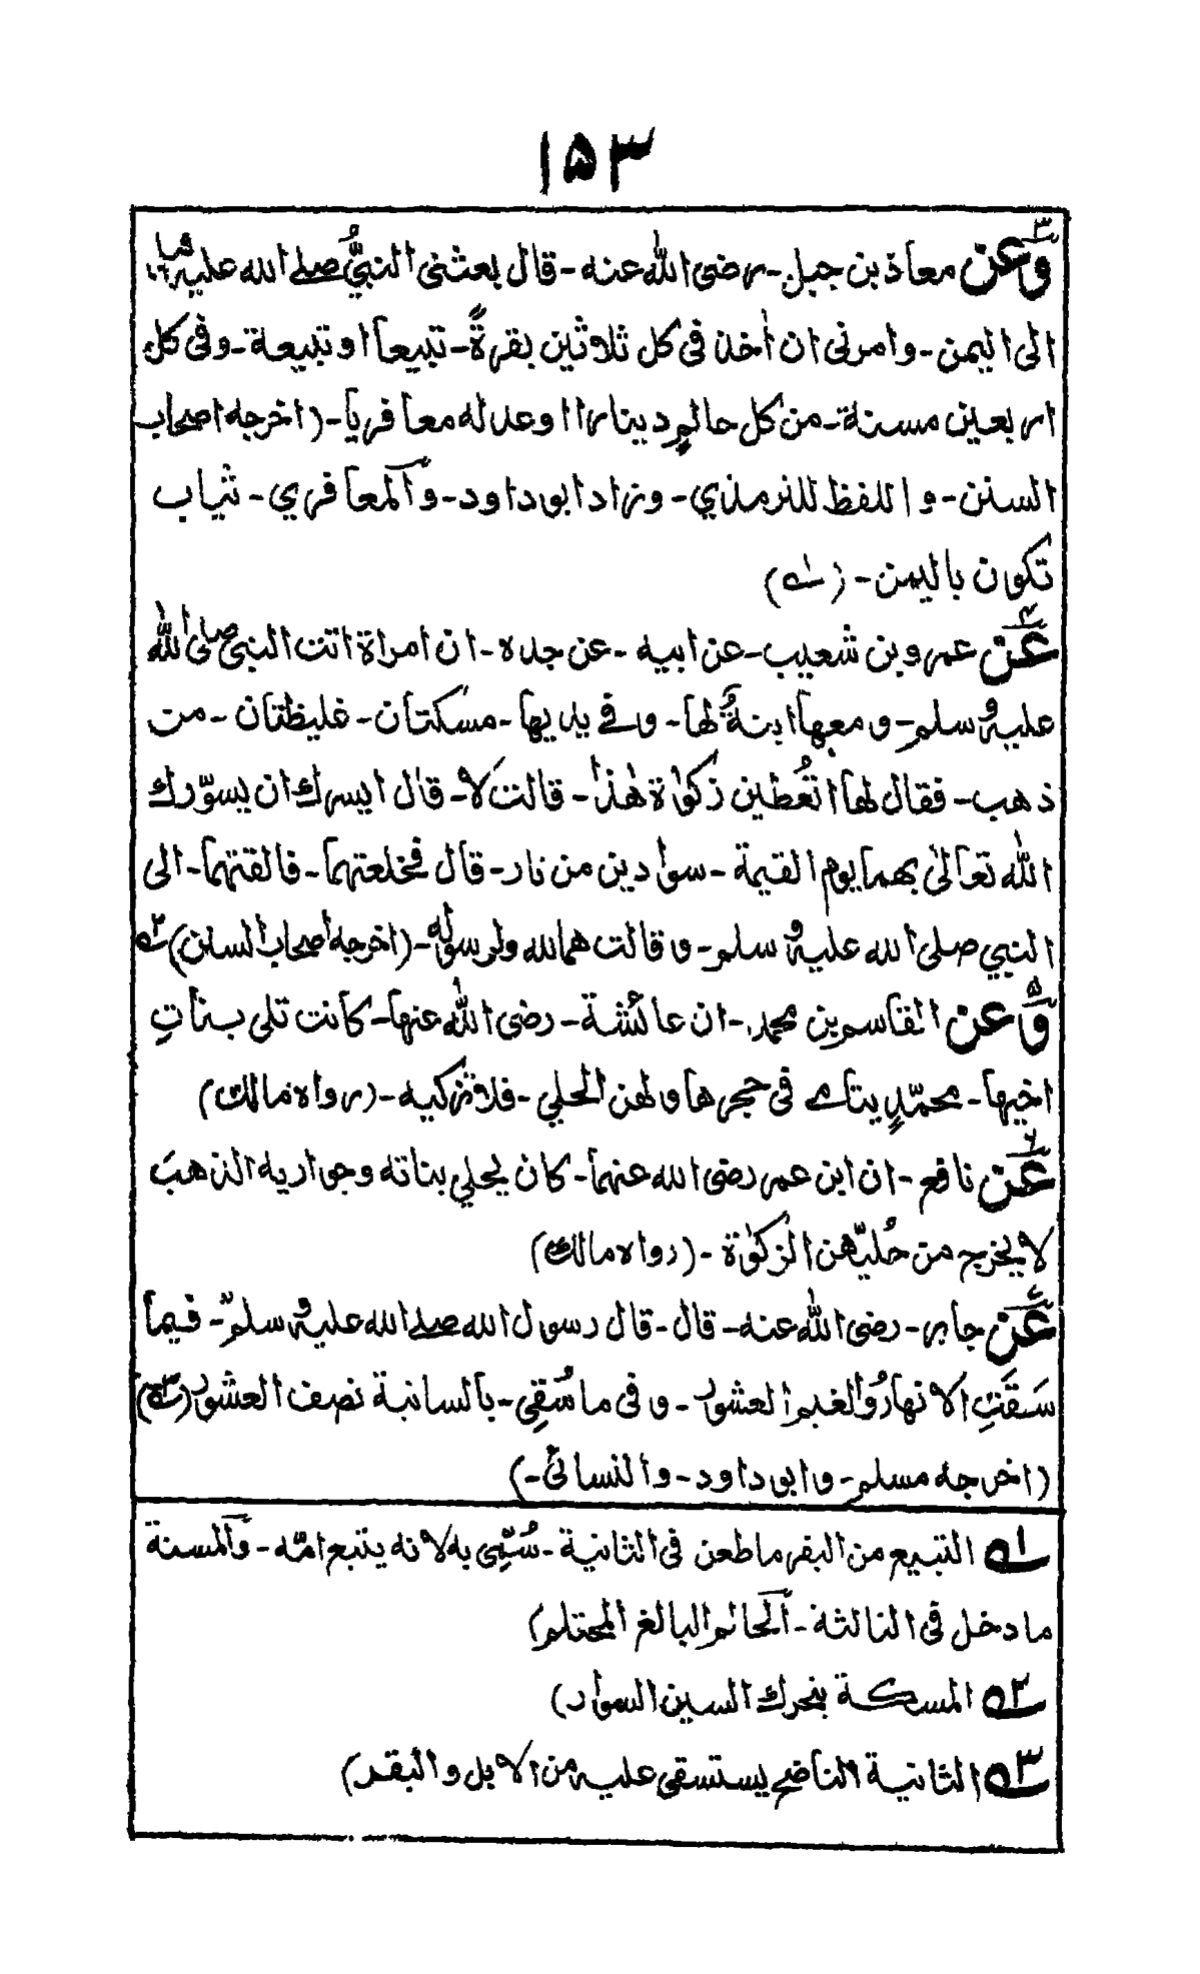 ١٥٣
٣ وعن معاذ بن جبل۔ رضی اللہ عنه۔ قال بعثنی النبیُّ صلے الله علیه وسلم
الی الیمن۔ وامرنی ان اٰخذ فی کل ثلاثین بقرةً۔ تبیعا او تبیعة۔ وفی کل
اربعین مسنة۔ من کل حالمٍ دینارا او عدله معافریا۔ (اخرجه اصحاب
السنن۔ واللفظ للترمذي۔ وزاد ابو داود۔ والمعافري۔ ثیاب
تکون بالیمن۔ (١ے)
٤ عن عمرو بن شعیب۔ عن ابیه۔ عن جده۔ ان امراة اتت النبی صلی اللہ
علیه وسلم۔ ومعها ابنةٌ لها۔ وفے یدیها۔ مسکتان۔ غلیظتان۔ من
ذهب۔ فقال لها اتُعطین زکوٰة هٰذا۔ قالت لا۔ قال ایسرك ان یسوّرك
اللہ تعالیٰ بهما یوم القیمة۔ سوادین من نار۔ قال فخلعتهما۔ فالقتهما۔ الی
النبي صلی الله علیه وسلم۔ وقالت هما لله ولرسوله۔ (اخرجه اصحاب السنن) ٢ے
٥ وعن القاسم بن محمد۔ ان عائشة۔ رضی اللہ عنها۔ کانت تلی بناتِ
اخیها۔ محمّدٍ یتامے فی حجرها ولهن الحلي۔ فلا تزکیه۔ (رواہ مالك)
٦ عن نافع۔ ان ابن عمر رضی الله عنهما۔ کان یحلي بناته وجواریه الذهبَ
لا یخرج من حُلیّهن الزکوٰة۔ (رواه مالك)
٧ عن جابر۔ رضی اللہ عنه۔ قال۔ قال رسول الله صلے الله علیه وسلم۔ فیما
سَقَتِ الانهارُ والغیم العشور۔ وفی ما سُقِي۔ بالسانیة نصف العشور (٣ے)
(اخرجه مسلم۔ وابو داود۔ والنسائی۔)
١ے التبیع من البقر ما طعن فی الثانیة۔ سُمِّی به لانه یتبع امّه۔ والمسنة
ما دخل فی الثالثة۔ الحالم البالغ المحتلم)
٢ے المسکة بتحرك السین السواد)
٣ے الثانیة الناضح یستسقی علیه من الابل والبقر)